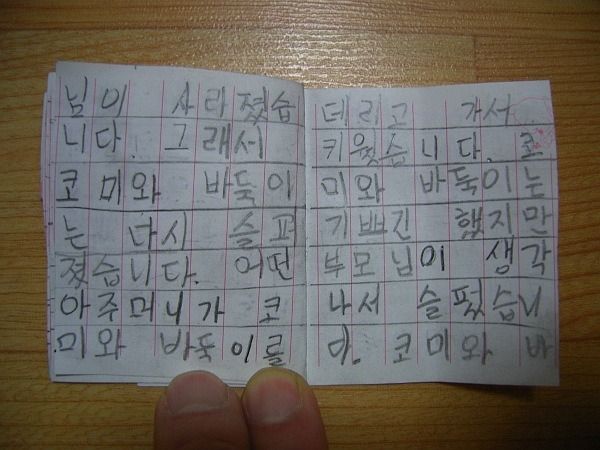 님이 사라졌습
니다. 그래서
코미와 바둑이
는 다시 슬퍼
졌습니다. 어떤
아주머니가 코
미와 바둑이를
데리고 가서
키웠습니다. 코
미와 바둑이는
기쁘긴 했지만
부모님이 생각
나서 슬펐습니
다. 코미와 바